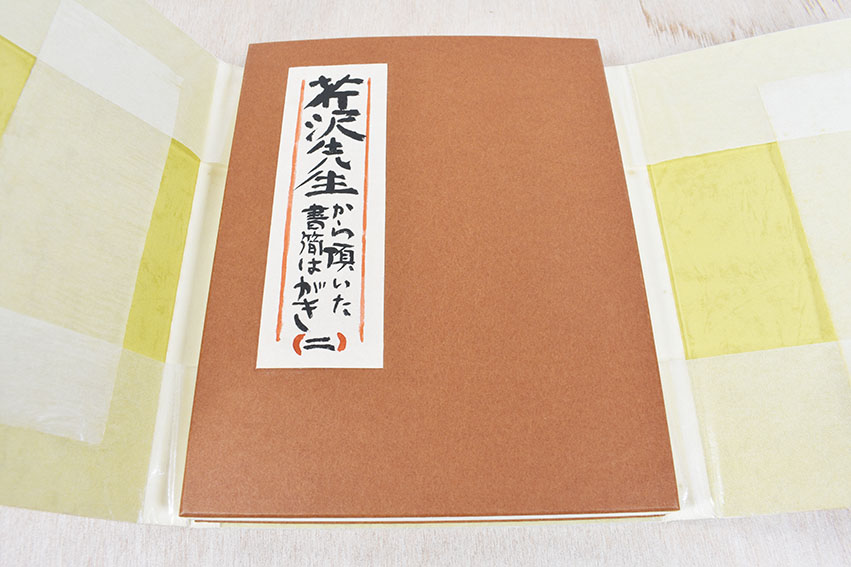 芹沢先生
から頂いた、
書簡はがき
(二)